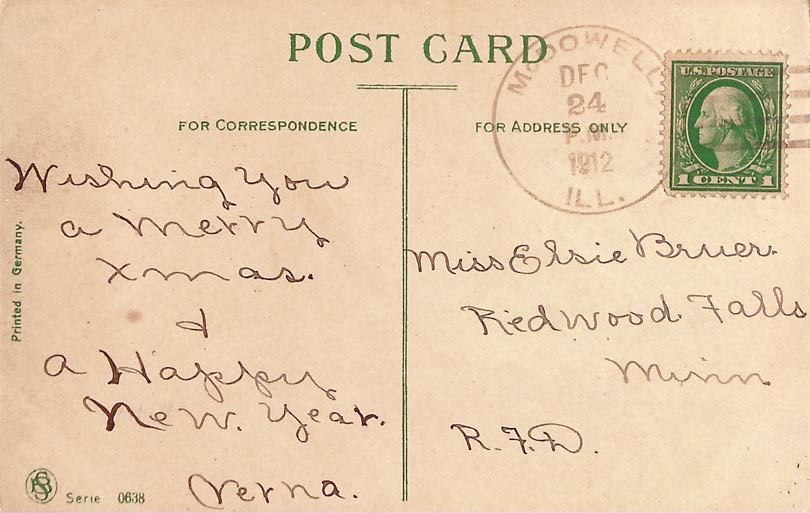 POST CARD
FOR CORRESPONDENCE
FOR ADDRESS ONLY
McDOWELL
DEC
24
P.M.
1912
ILL.
U.S. POSTAGE
1 CENT 1
Wishing You
a Merry
Xmas.
&
a Happy
New. Year.
Verna.
Miss Elsie Bruer.
Redwood. Falls
Minn
R.F.D.
Printed in Germany.
Serie 0638